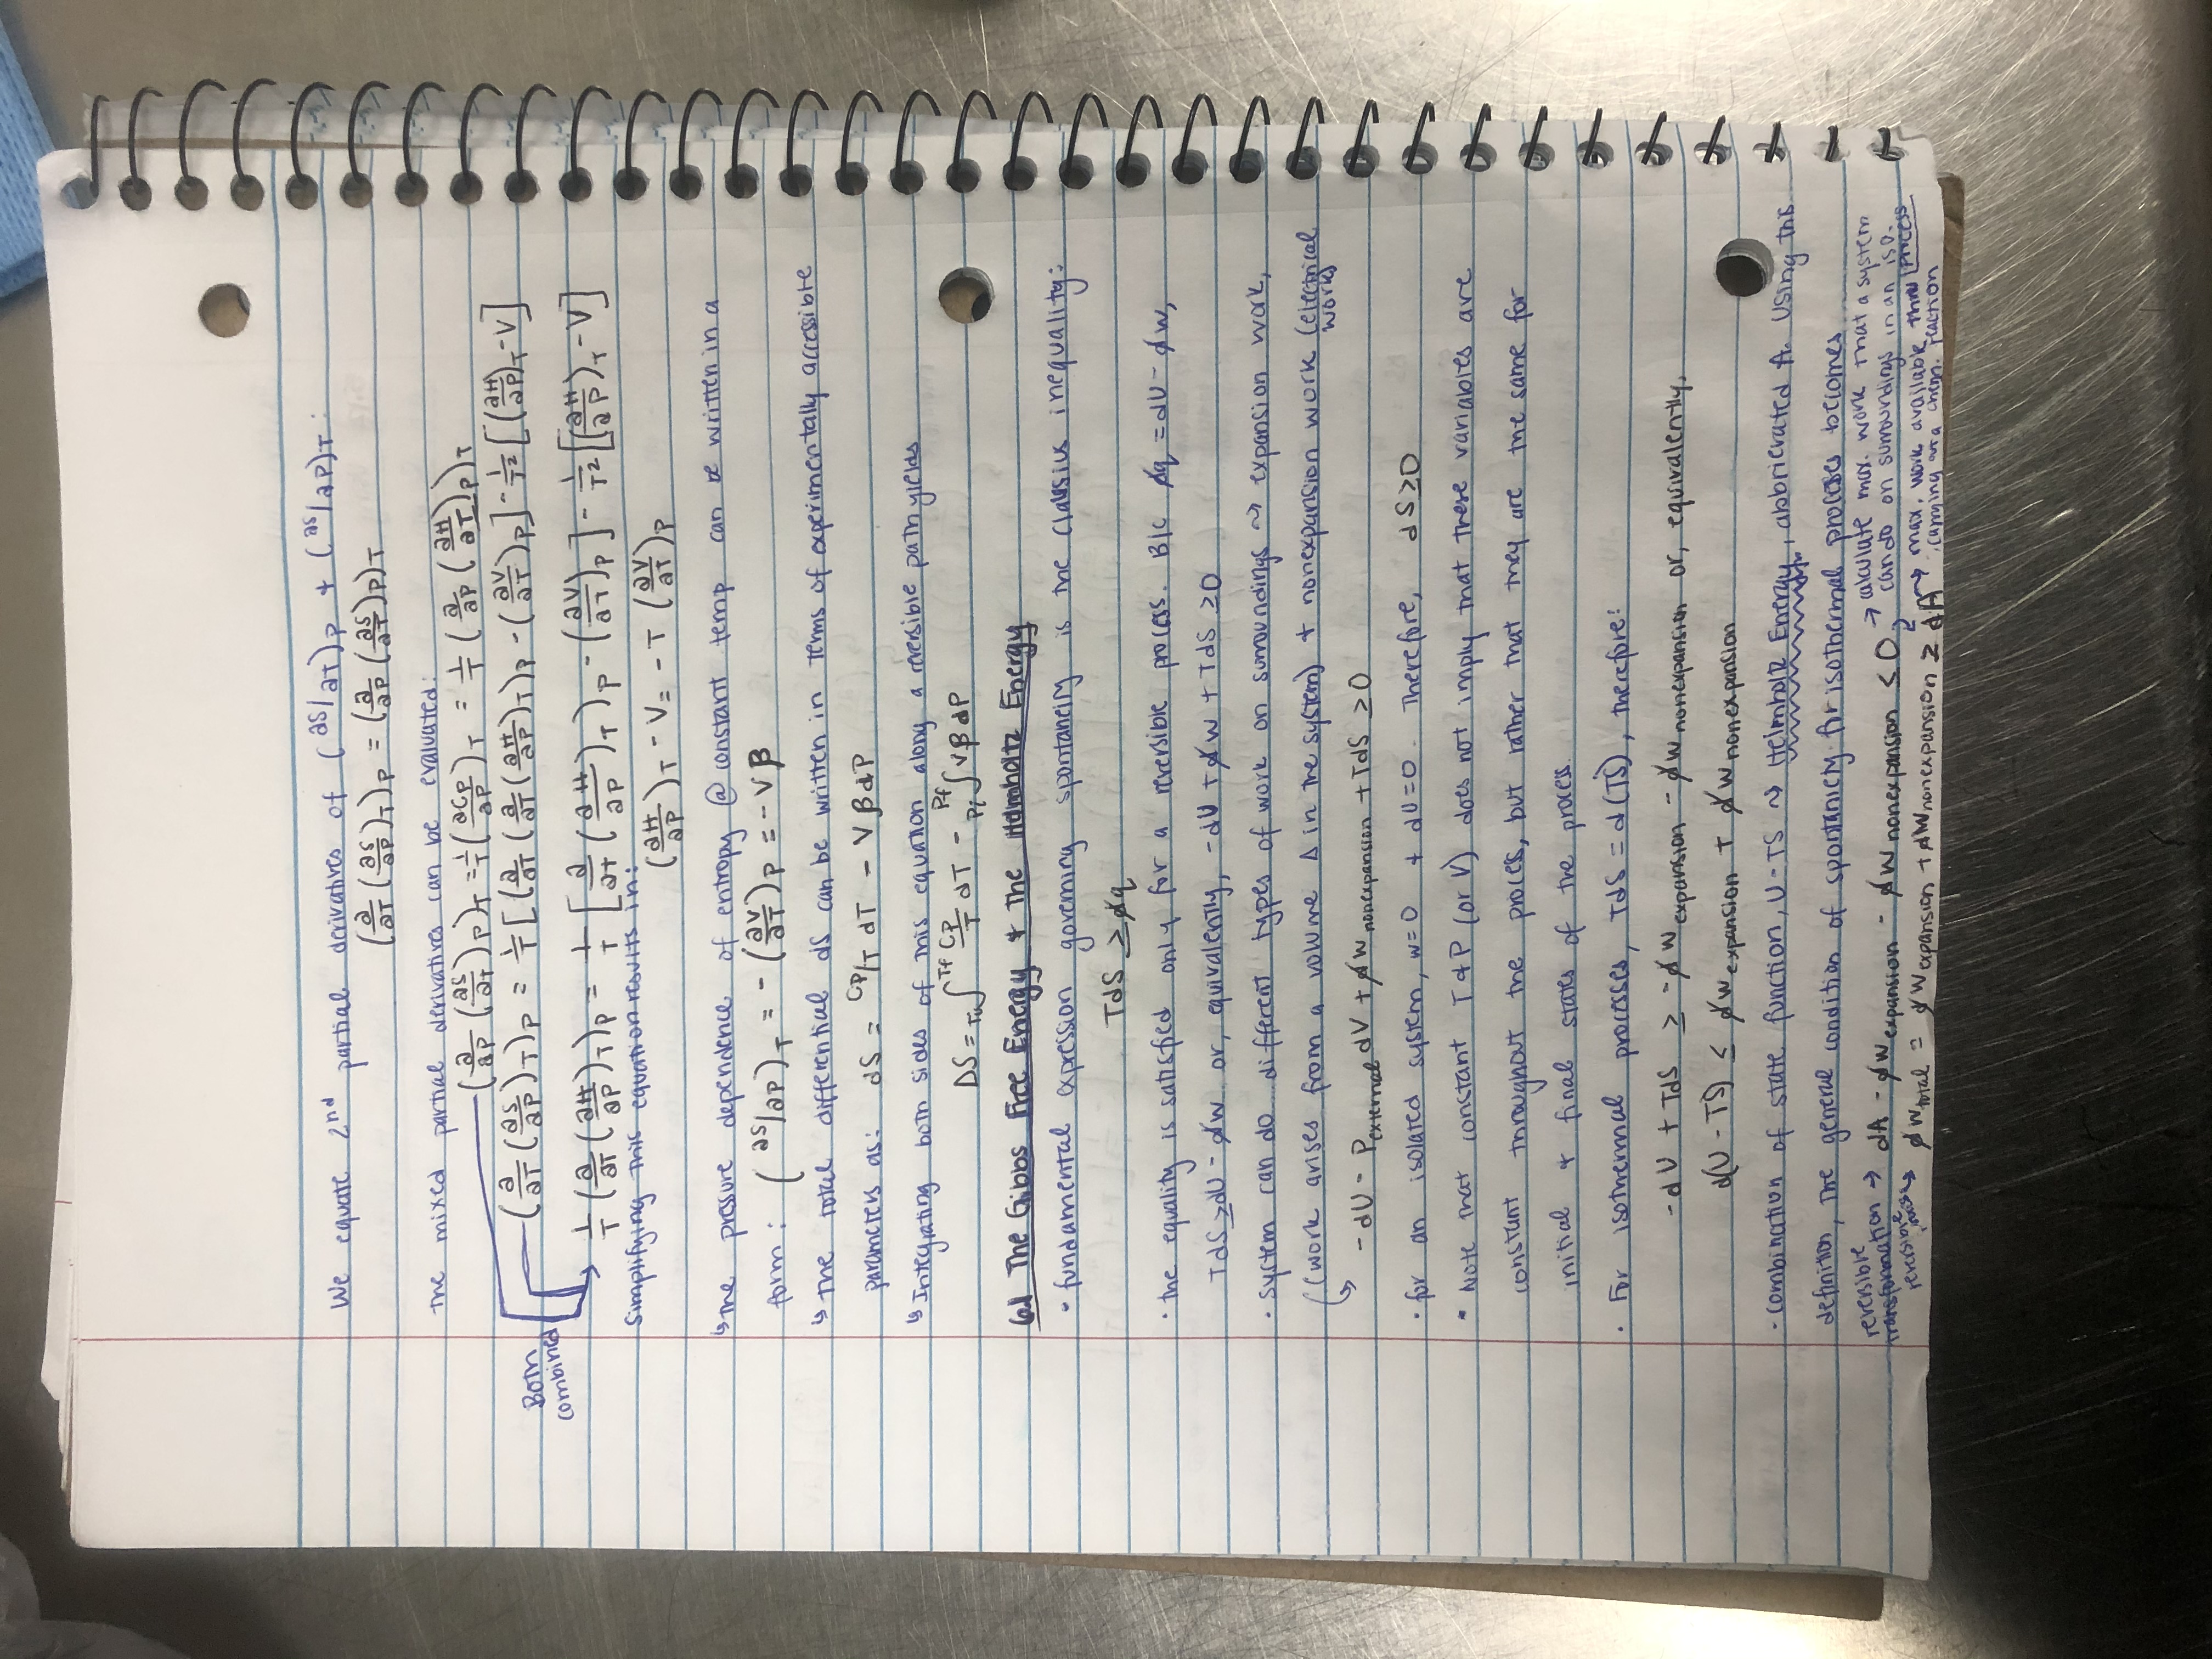 We equate 2nd partial derivatives of (∂S/∂T)P + (∂S/∂P)T:
(∂/∂T (∂S/∂P)T)P = (∂/∂P (∂S/∂T)P)T
The mixed partial derivatives can be evaluated:
(∂/∂P (∂S/∂T)P)T = 1/T (∂CP/∂P)T = 1/T (∂/∂P (∂H/∂T)P)T
(∂/∂T (∂S/∂P)T)P = 1/T [(∂/∂T (∂/∂T (∂H/∂P)T)P - (∂V/∂T)P] - 1/T² [(∂H/∂P)T - V]
Both combined
1/T (∂/∂T (∂H/∂P)T)P = 1/T [∂/∂T (∂H/∂P)T)P - (∂V/∂T)P] - 1/T² [(∂H/∂P)T - V]
Simplifying this equation results in:
(∂H/∂P)T - V = - T (∂V/∂T)P
↳ The pressure dependence of entropy @ constant temp can be written in a
form: (∂S/∂P)T = - (∂V/∂T)P = - Vβ
↳ The total differential dS can be written in terms of experimentally accessible
parameters as: dS = CP/T dT - VβdP
↳ Integrating both sides of this equation along a reversible path yields
ΔS = ∫Tf CP/T dT - Pi∫Pf VβdP
6.1 The Gibbs Free Energy + The Helmholtz Energy
• fundamental expression governing spontaneity is the Clausius inequality:
TdS ≥ đq
• the equality is satisfied only for a reversible process. B/C đq = dU - đw,
TdS ≥ dU - đw or, equivalently, -dU + đw + TdS ≥ 0
• System can do different types of work on surroundings ⇝ expansion work,
(work arises from a volume Δ in the system) + nonexpansion work (electrical work)
↳ -dU - Pexternal dV + đw nonexpansion + TdS ≥ 0
• for an isolated system, w=0 + dU=0. Therefore, dS≥0
• Note that constant T + P (or V) does not imply that these variables are
constant throughout the process, but rather that they are the same for
initial + final states of the process.
• For isothermal processes, TdS = d(TS), therefore:
-dU + TdS ≥ -đw expansion - đw nonexpansion or, equivalently,
d(U - TS) ≤ đw expansion + đw nonexpansion
• combination of state function, U-TS ⇝ Helmholtz Energy, abbrierated A. Using this
definition, the general condition of spontaniety for isothermal processes becomes
reversible transformation → dA - đw expansion - đw nonexpansion ≤ 0 → calculate max. work that a system can do on surroundings in an iso. process
reversible → đw total = đw expansion + đw nonexpansion ≥ dA ⇝ max. work available thru carrying out a chem. reaction